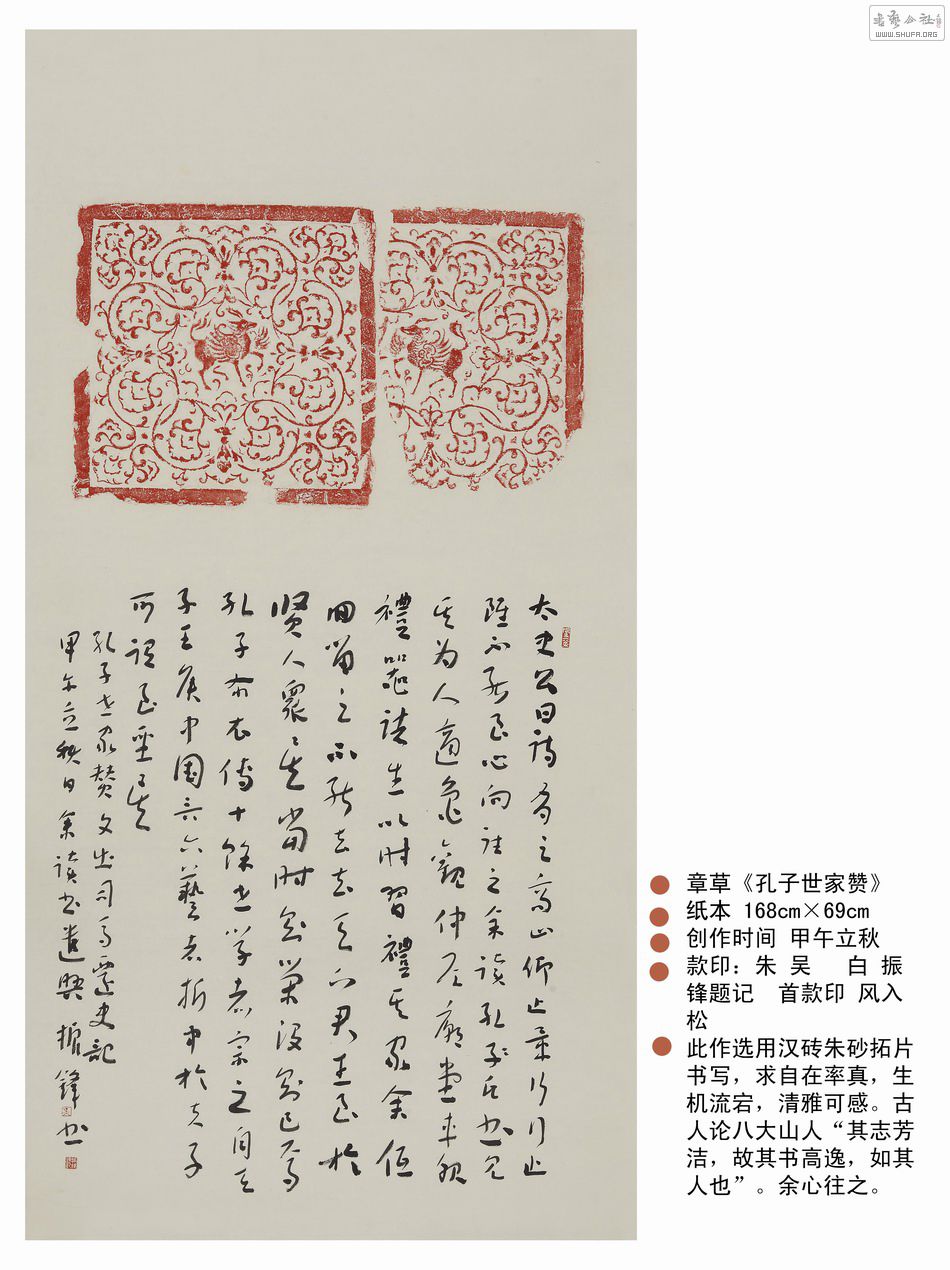 書藝公社
WWW.SHUFA.ORG
太史公曰詩有之高山仰止景行行止
雖不能至心向往之余读孔子氏书见
其为人適魯觀仲尼廟堂车服
禮器諸生以时習禮其家余低
回留之不能去云天下君王至於
贤人眾矣当时则榮没则已焉
孔子布衣传十馀世学者宗之自天
子王侯中国言六藝者折中於夫子
可谓至聖矣
孔子世家赞文出司马遷史記
甲午立秋日余读书遣興振鋒书
章草《孔子世家赞》
纸本 168cm×69cm
创作时间 甲午立秋
款印：朱 吴 白 振
锋题记 首款印 风入
松
此作选用汉砖朱砂拓片
书写，求自在率真，生
机流宕，清雅可感。古
人论八大山人“其志芳
洁，故其书高逸，如其
人也”。余心往之。